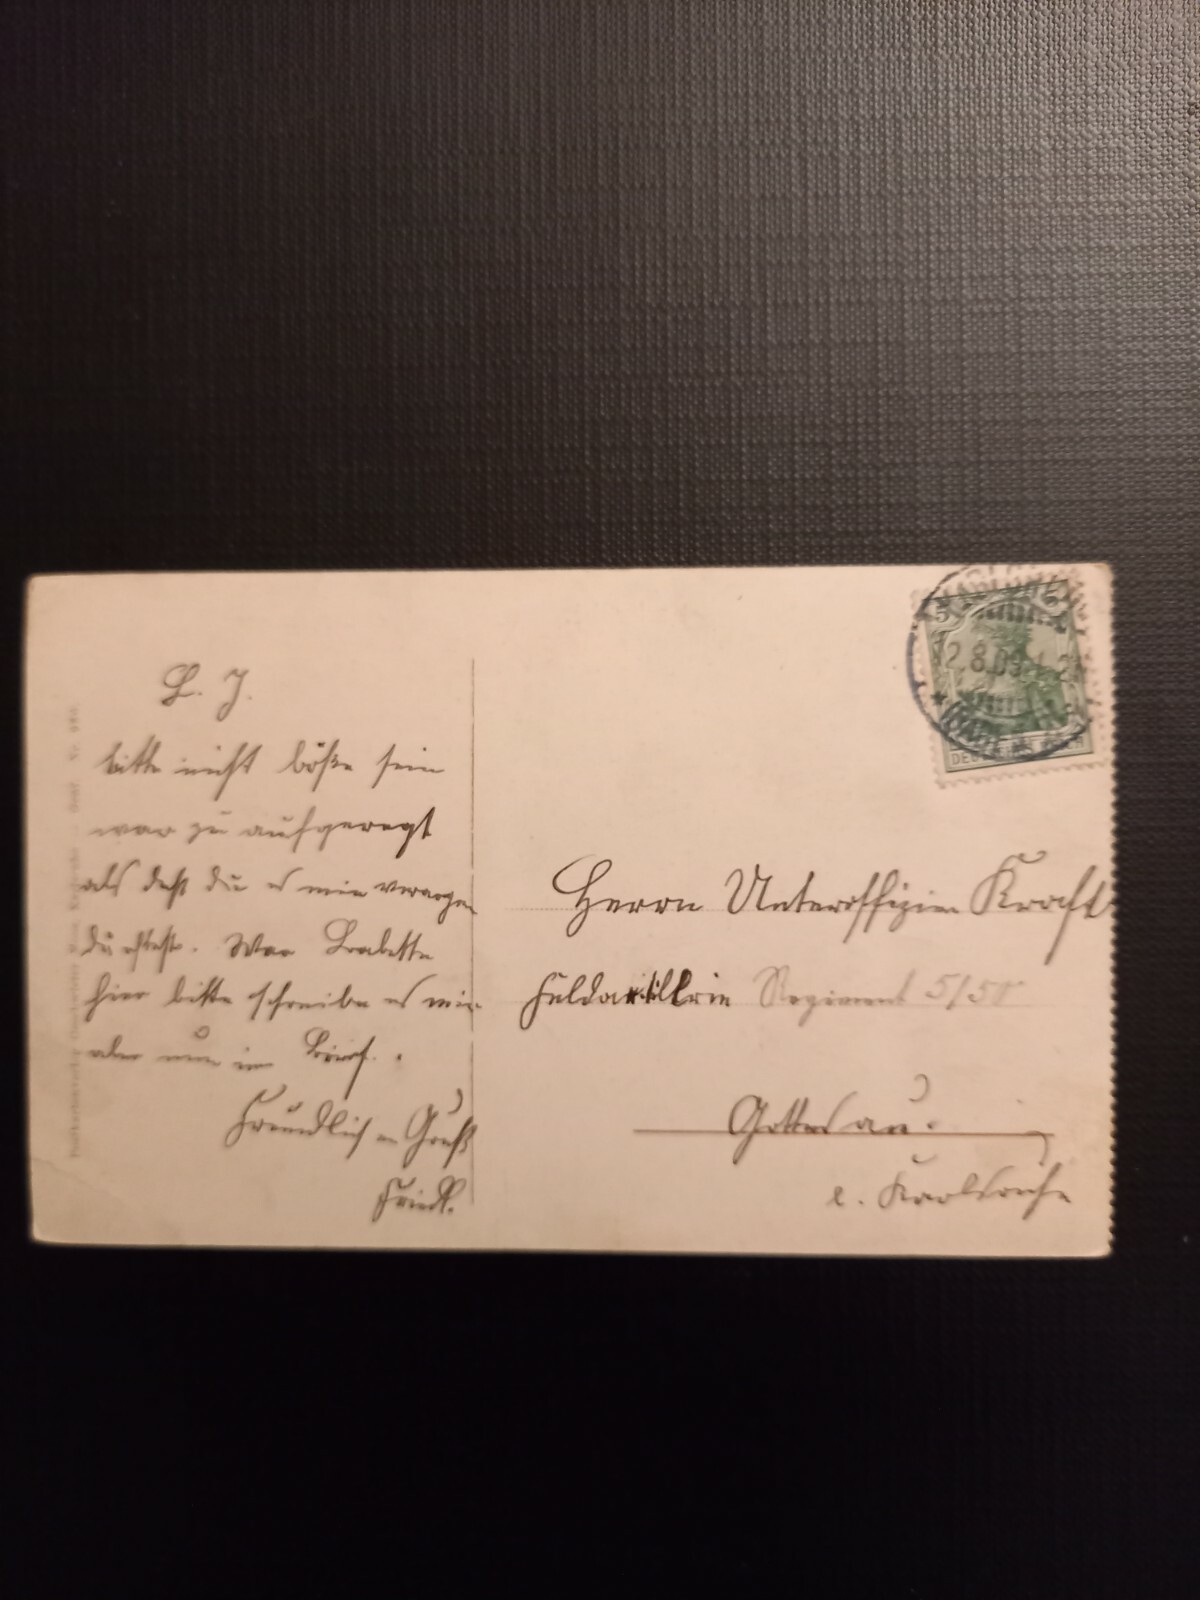 L. J.
bitte nicht böße sein
war zu aufgeregt
als daß du es mir verargen
dürftest. War Babette
hier bitte schreibe es mir
aber nur im Brief.
Freundlichen Gruß
Friedl.
5 5
2.8.09.
DEUTSCHES REICH
Herrn Unteroffizier Kraft
Feldartillerie Regiment 5/50
Gottesau.
b. Karlsruhe